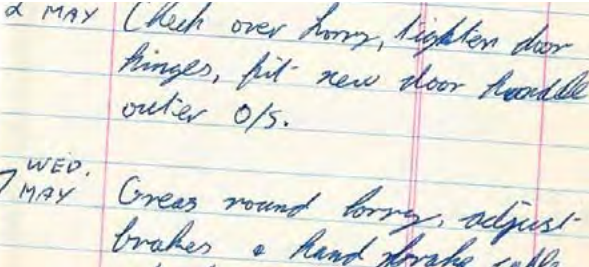 2 MAY Check over lorry, tighten door
hinges, fit new door handle
outer O/S.
WED.
7 MAY Greas round lorry, adjust
brakes & hand brake cable